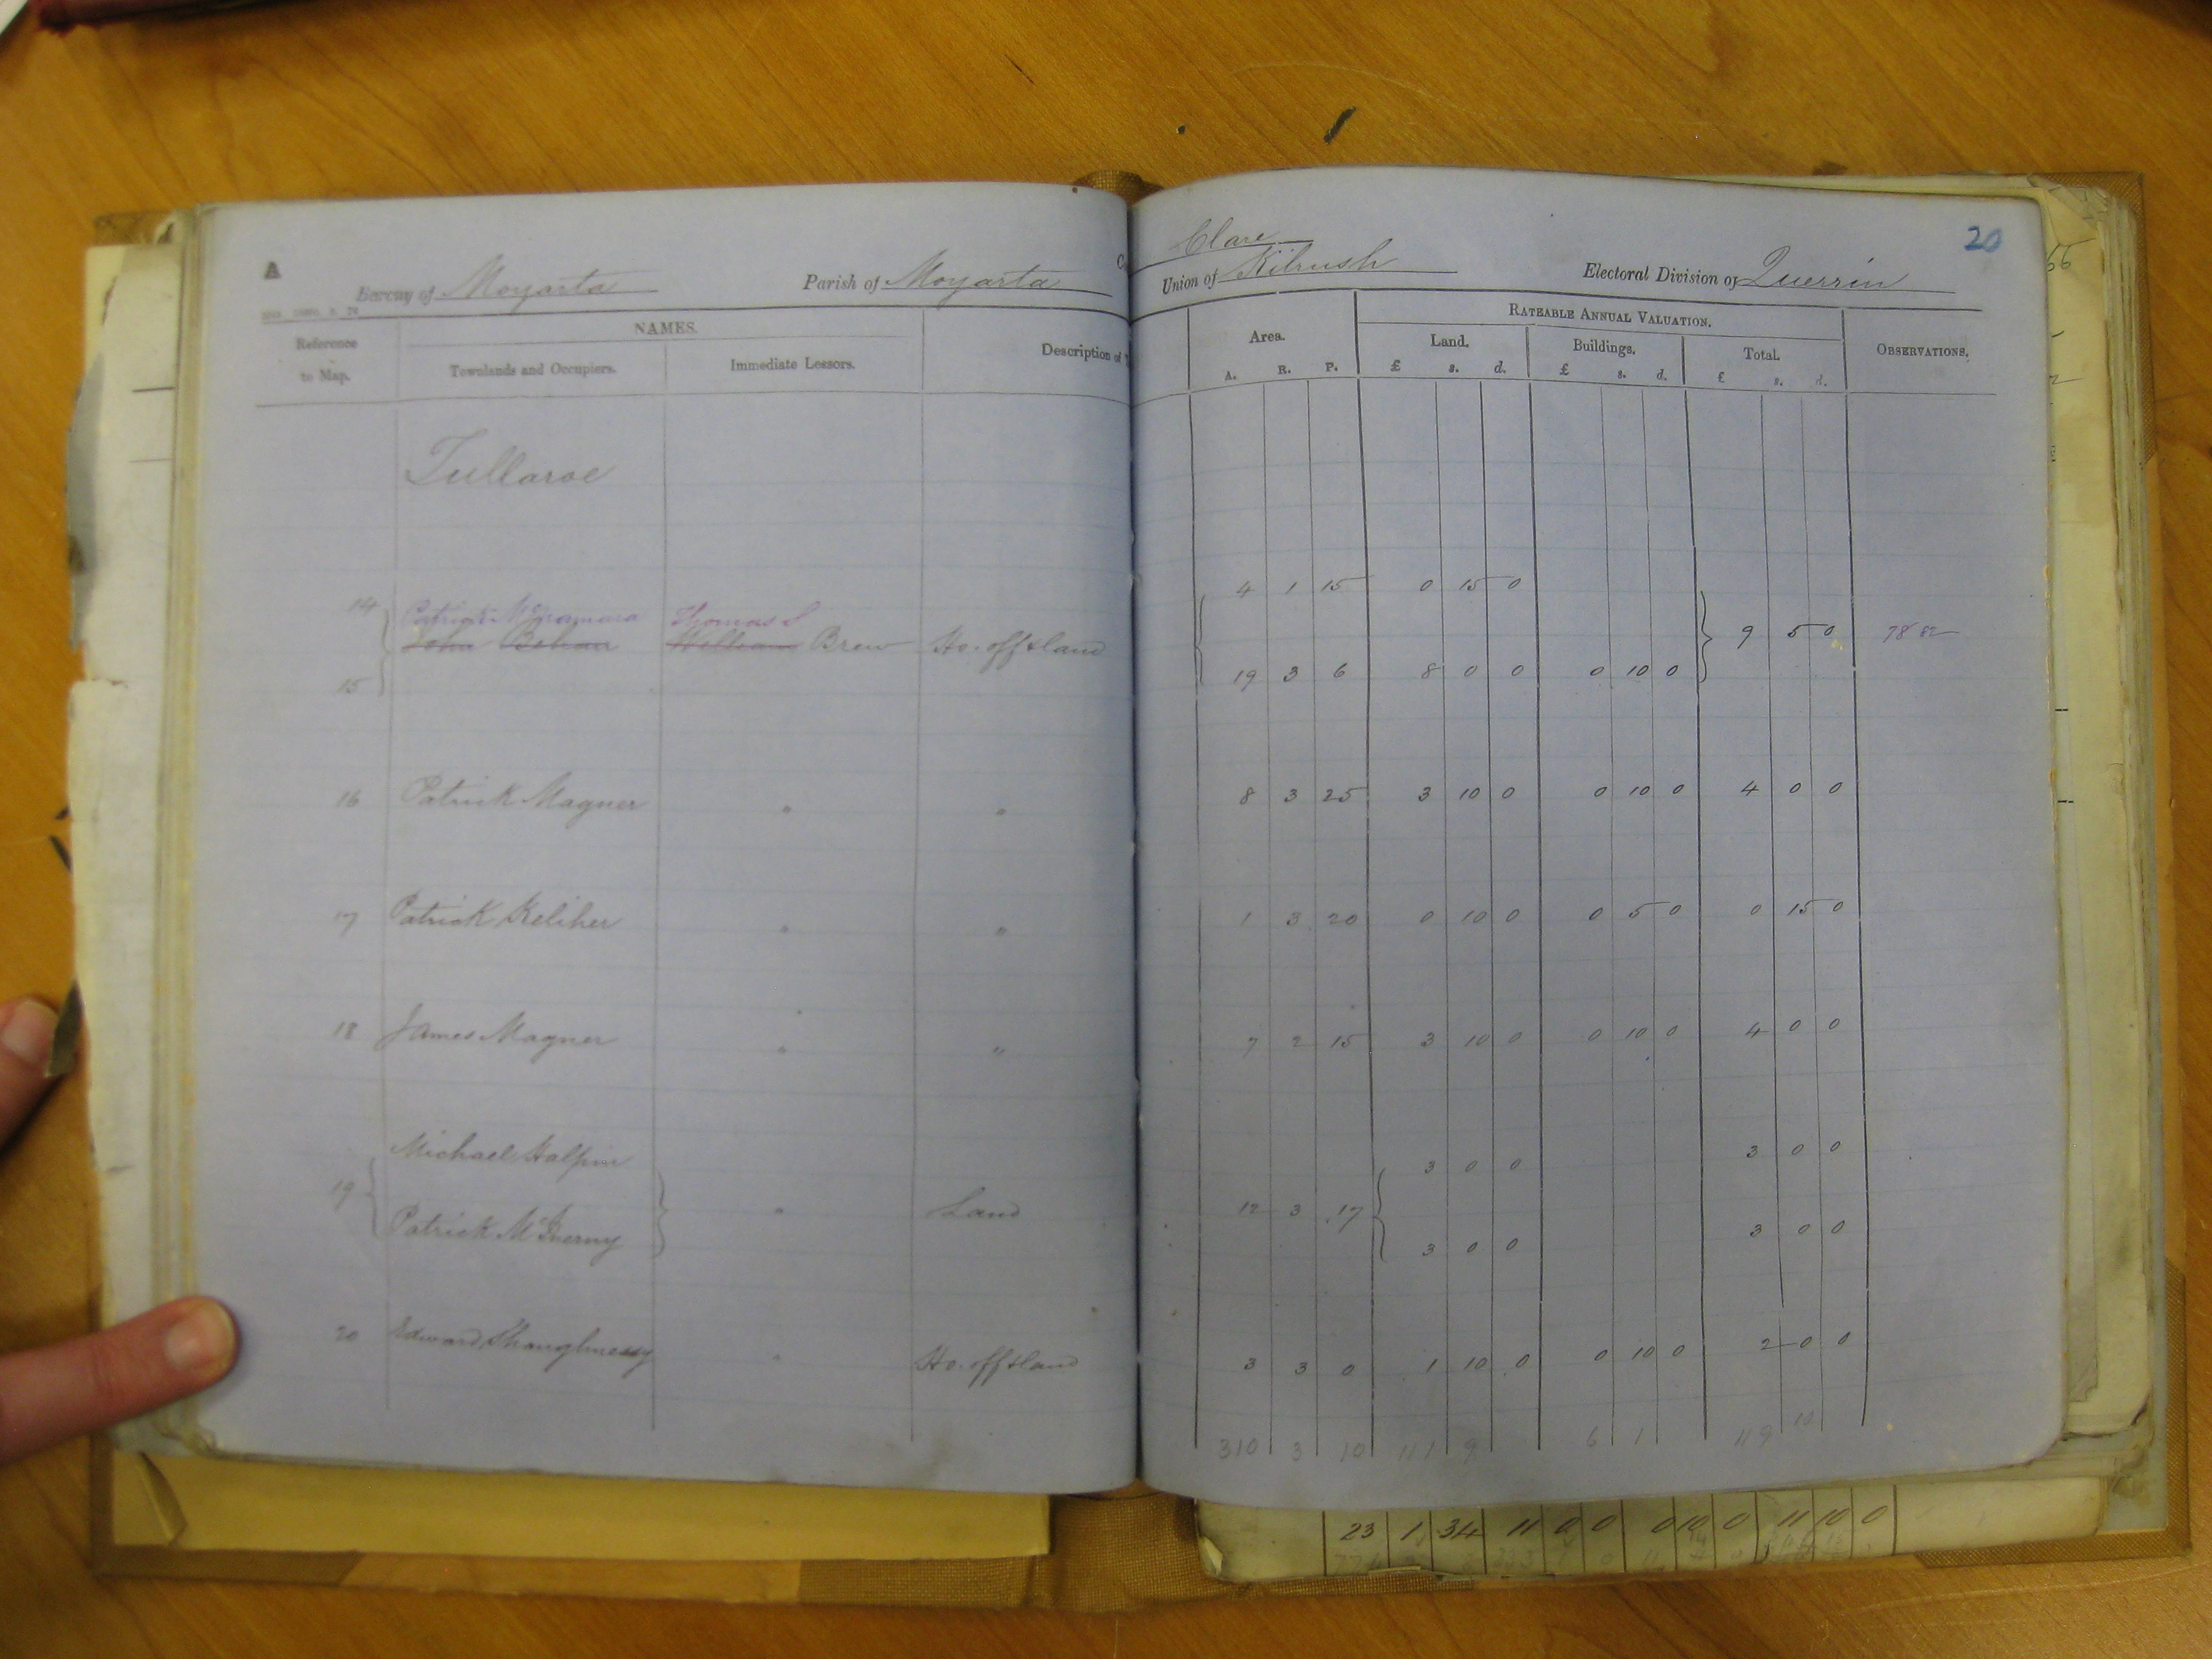 20
A
Clare
Barony of Moyarta Parish of Moyarta Union of Kilrush Electoral Division of Querrin
NAMES. RATEABLE ANNUAL VALUATION.
Reference to Map. Townlands and Occupiers. Immediate Lessors. Description of Area. Land. Buildings. Total. OBSERVATIONS.
A. R. P. £ s. d. £ s. d. £ s. d.
Tullaroe
14 Patrick McNamara Thomas S 4 1 15 0 15 0
John Behan William Brew Ho. off & land 9 5 0 78 82
15 19 3 6 8 0 0 0 10 0
16 Patrick Magner " " 8 3 25 3 10 0 0 10 0 4 0 0
17 Patrick Keliher " " 1 3 20 0 10 0 0 5 0 0 15 0
18 James Magner " " 7 2 15 3 10 0 0 10 0 4 0 0
Michael Halpin 3 0 0 3 0 0
19 " Land 12 3 17
Patrick McInerny 3 0 0 3 0 0
20 Edward Shaughnessy " Ho. off & land 3 3 0 1 10 0 0 10 0 2 0 0
310 3 10 111 9 6 1
23 1 34 11 0 0 0 10 0 11 10 0